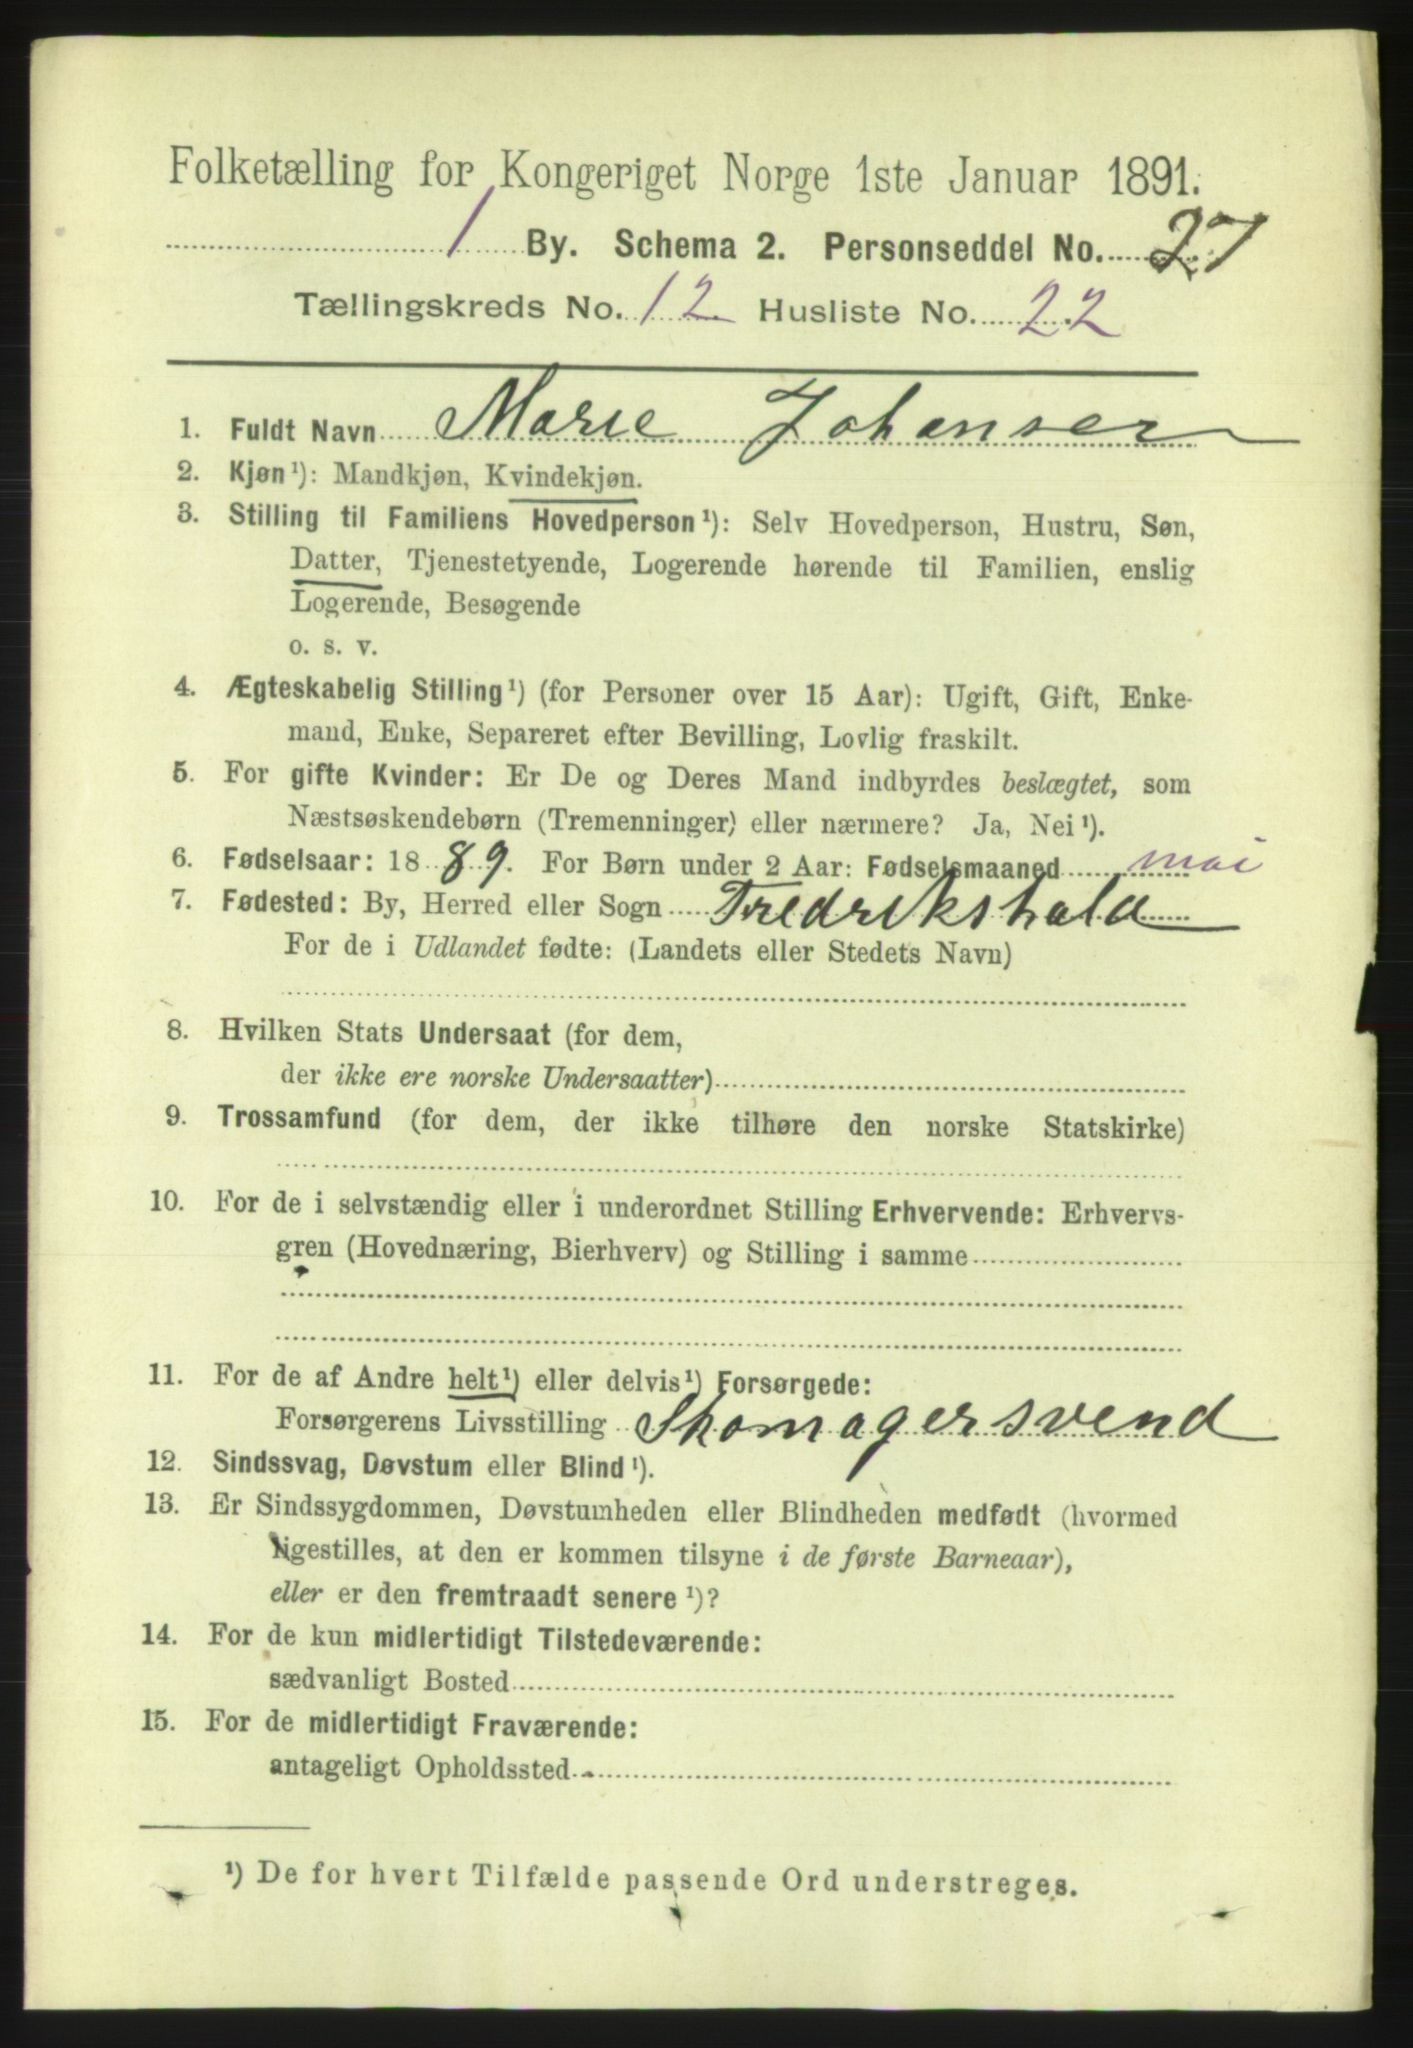 Folketælling for Kongeriget Norge 1ste Januar 1891.
1 By. Schema 2. Personseddel No. 27
Tællingskreds No. 12 Husliste No. 22
1. Fuldt Navn Marie Johansen
2. Kjøn¹): Mandkjøn, Kvindekjøn.
3. Stilling til Familiens Hovedperson¹): Selv Hovedperson, Hustru, Søn,
Datter, Tjenestetyende, Logerende hørende til Familien, enslig
Logerende, Besøgende
o. s. v.
4. Ægteskabelig Stilling¹) (for Personer over 15 Aar): Ugift, Gift, Enke-
mand, Enke, Separeret efter Bevilling, Lovlig fraskilt.
5. For gifte Kvinder: Er De og Deres Mand indbyrdes beslægtet, som
Næstsøskendebørn (Tremenninger) eller nærmere? Ja, Nei¹).
6. Fødselsaar: 1889. For Børn under 2 Aar: Fødselsmaaned mai
7. Fødested: By, Herred eller Sogn Fredrikshald
For de i Udlandet fødte: (Landets eller Stedets Navn)
8. Hvilken Stats Undersaat (for dem,
der ikke ere norske Undersaatter)
9. Trossamfund (for dem, der ikke tilhøre den norske Statskirke)
10. For de i selvstændig eller i underordnet Stilling Erhvervende: Erhvervs-
gren (Hovednæring, Bierhverv) og Stilling i samme
11. For de af Andre helt¹) eller delvis¹) Forsørgede:
Forsørgerens Livsstilling Skomagersvend
12. Sindssvag, Døvstum eller Blind¹).
13. Er Sindssygdommen, Døvstumheden eller Blindheden medfødt (hvormed
ligestilles, at den er kommen tilsyne i de første Barneaar),
eller er den fremtraadt senere¹)?
14. For de kun midlertidigt Tilstedeværende:
sædvanligt Bosted
15. For de midlertidigt Fraværende:
antageligt Opholdssted
¹) De for hvert Tilfælde passende Ord understreges.